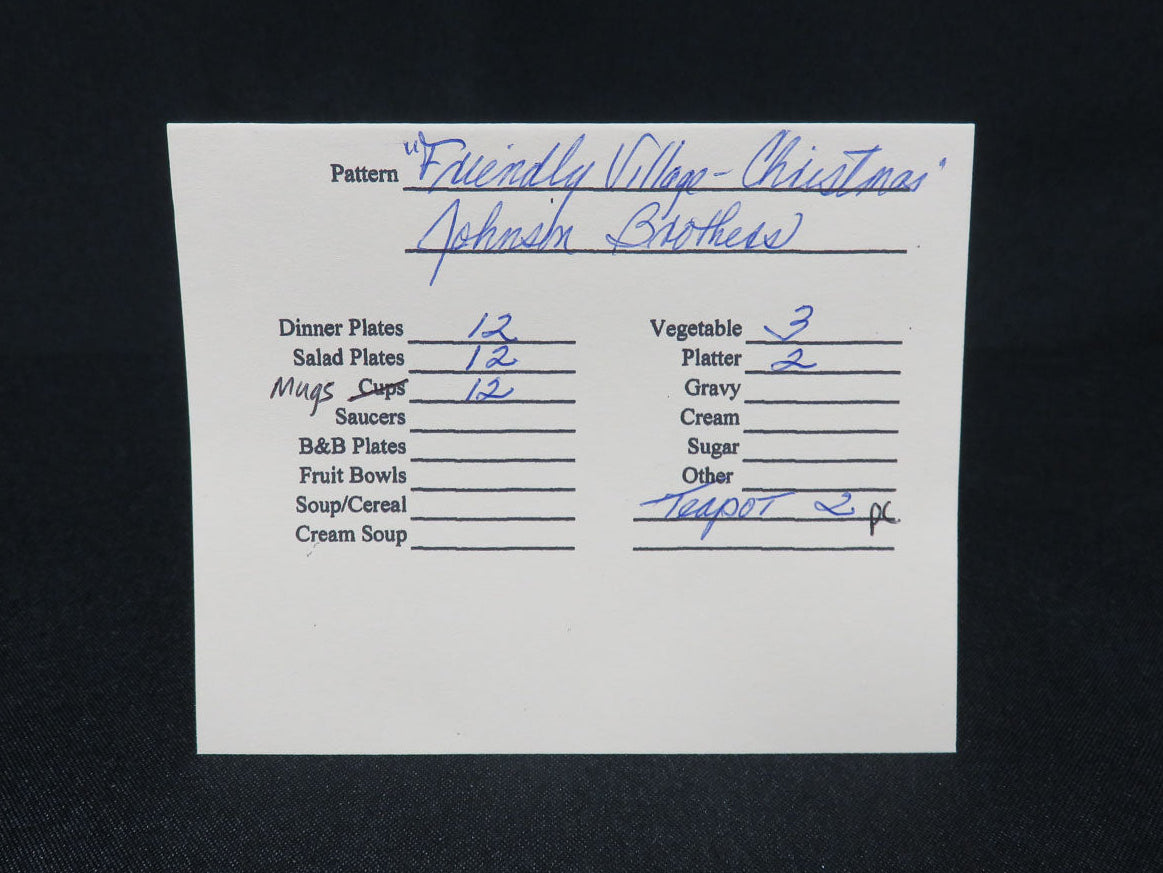 Pattern "Friendly Village - Christmas"
Johnson Brothers
Dinner Plates 12
Salad Plates 12
Mugs Cups 12
Saucers
B&B Plates
Fruit Bowls
Soup/Cereal
Cream Soup
Vegetable 3
Platter 2
Gravy
Cream
Sugar
Other
Teapot 2 pc